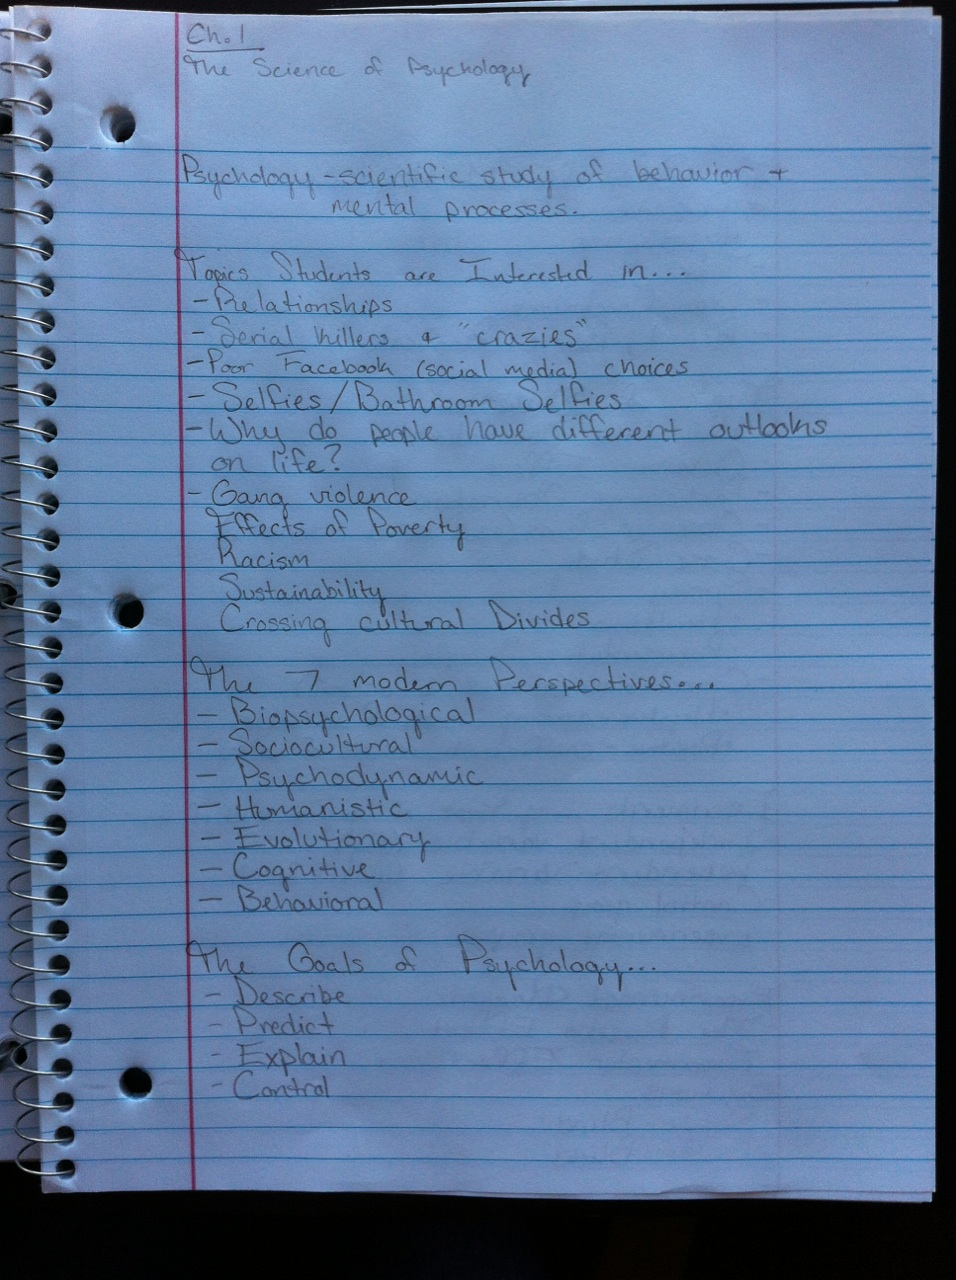 Ch. 1
The Science of Psychology
Psychology - scientific study of behavior +
mental processes.
Topics Students are Interested in...
- Relationships
- Serial killers & "crazies"
- Poor Facebook (social media) choices
- Selfies/Bathroom Selfies
- Why do people have different outlooks
on life?
- Gang violence
Effects of Poverty
Racism
Sustainability
Crossing cultural Divides
The 7 modern Perspectives...
- Biopsychological
- Sociocultural
- Psychodynamic
- Humanistic
- Evolutionary
- Cognitive
- Behavioral
The Goals of Psychology...
- Describe
- Predict
- Explain
- Control